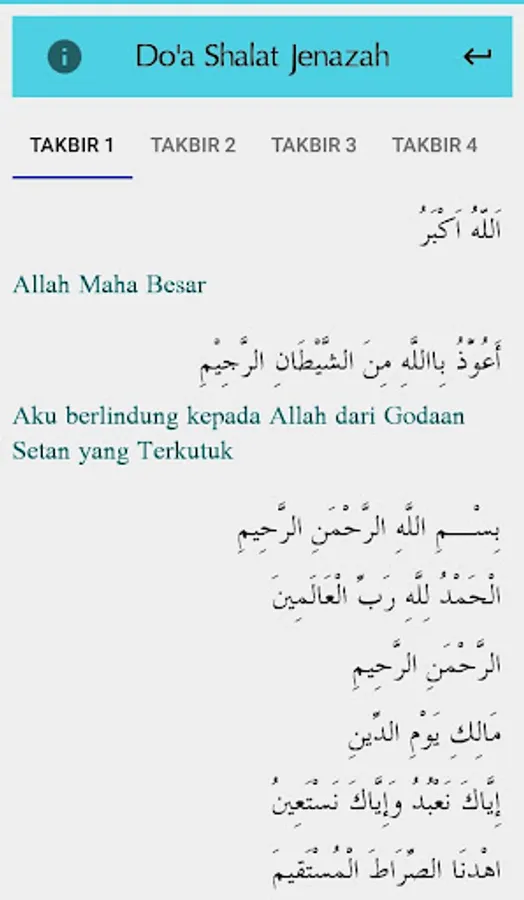 Do'a Shalat Jenazah
TAKBIR 1 TAKBIR 2 TAKBIR 3 TAKBIR 4
اَللّٰهُ اَكْبَرُ
Allah Maha Besar
أَعُوْذُ بِااللَّهِ مِنَ الشَّيْطَانِ الرَّجِيْمِ
Aku berlindung kepada Allah dari Godaan
Setan yang Terkutuk
بِسْــــمِ اللَّهِ الرَّحْمَنِ الرَّحِيمِ
الْحَمْدُ لِلَّهِ رَبِّ الْعَالَمِينَ
الرَّحْمَنِ الرَّحِيمِ
مَالِكِ يَوْمِ الدِّينِ
إِيَّاكَ نَعْبُدُ وَإِيَّاكَ نَسْتَعِينُ
اهْدنَا الصِّرَاطَ الْمُسْتَقِيمَ